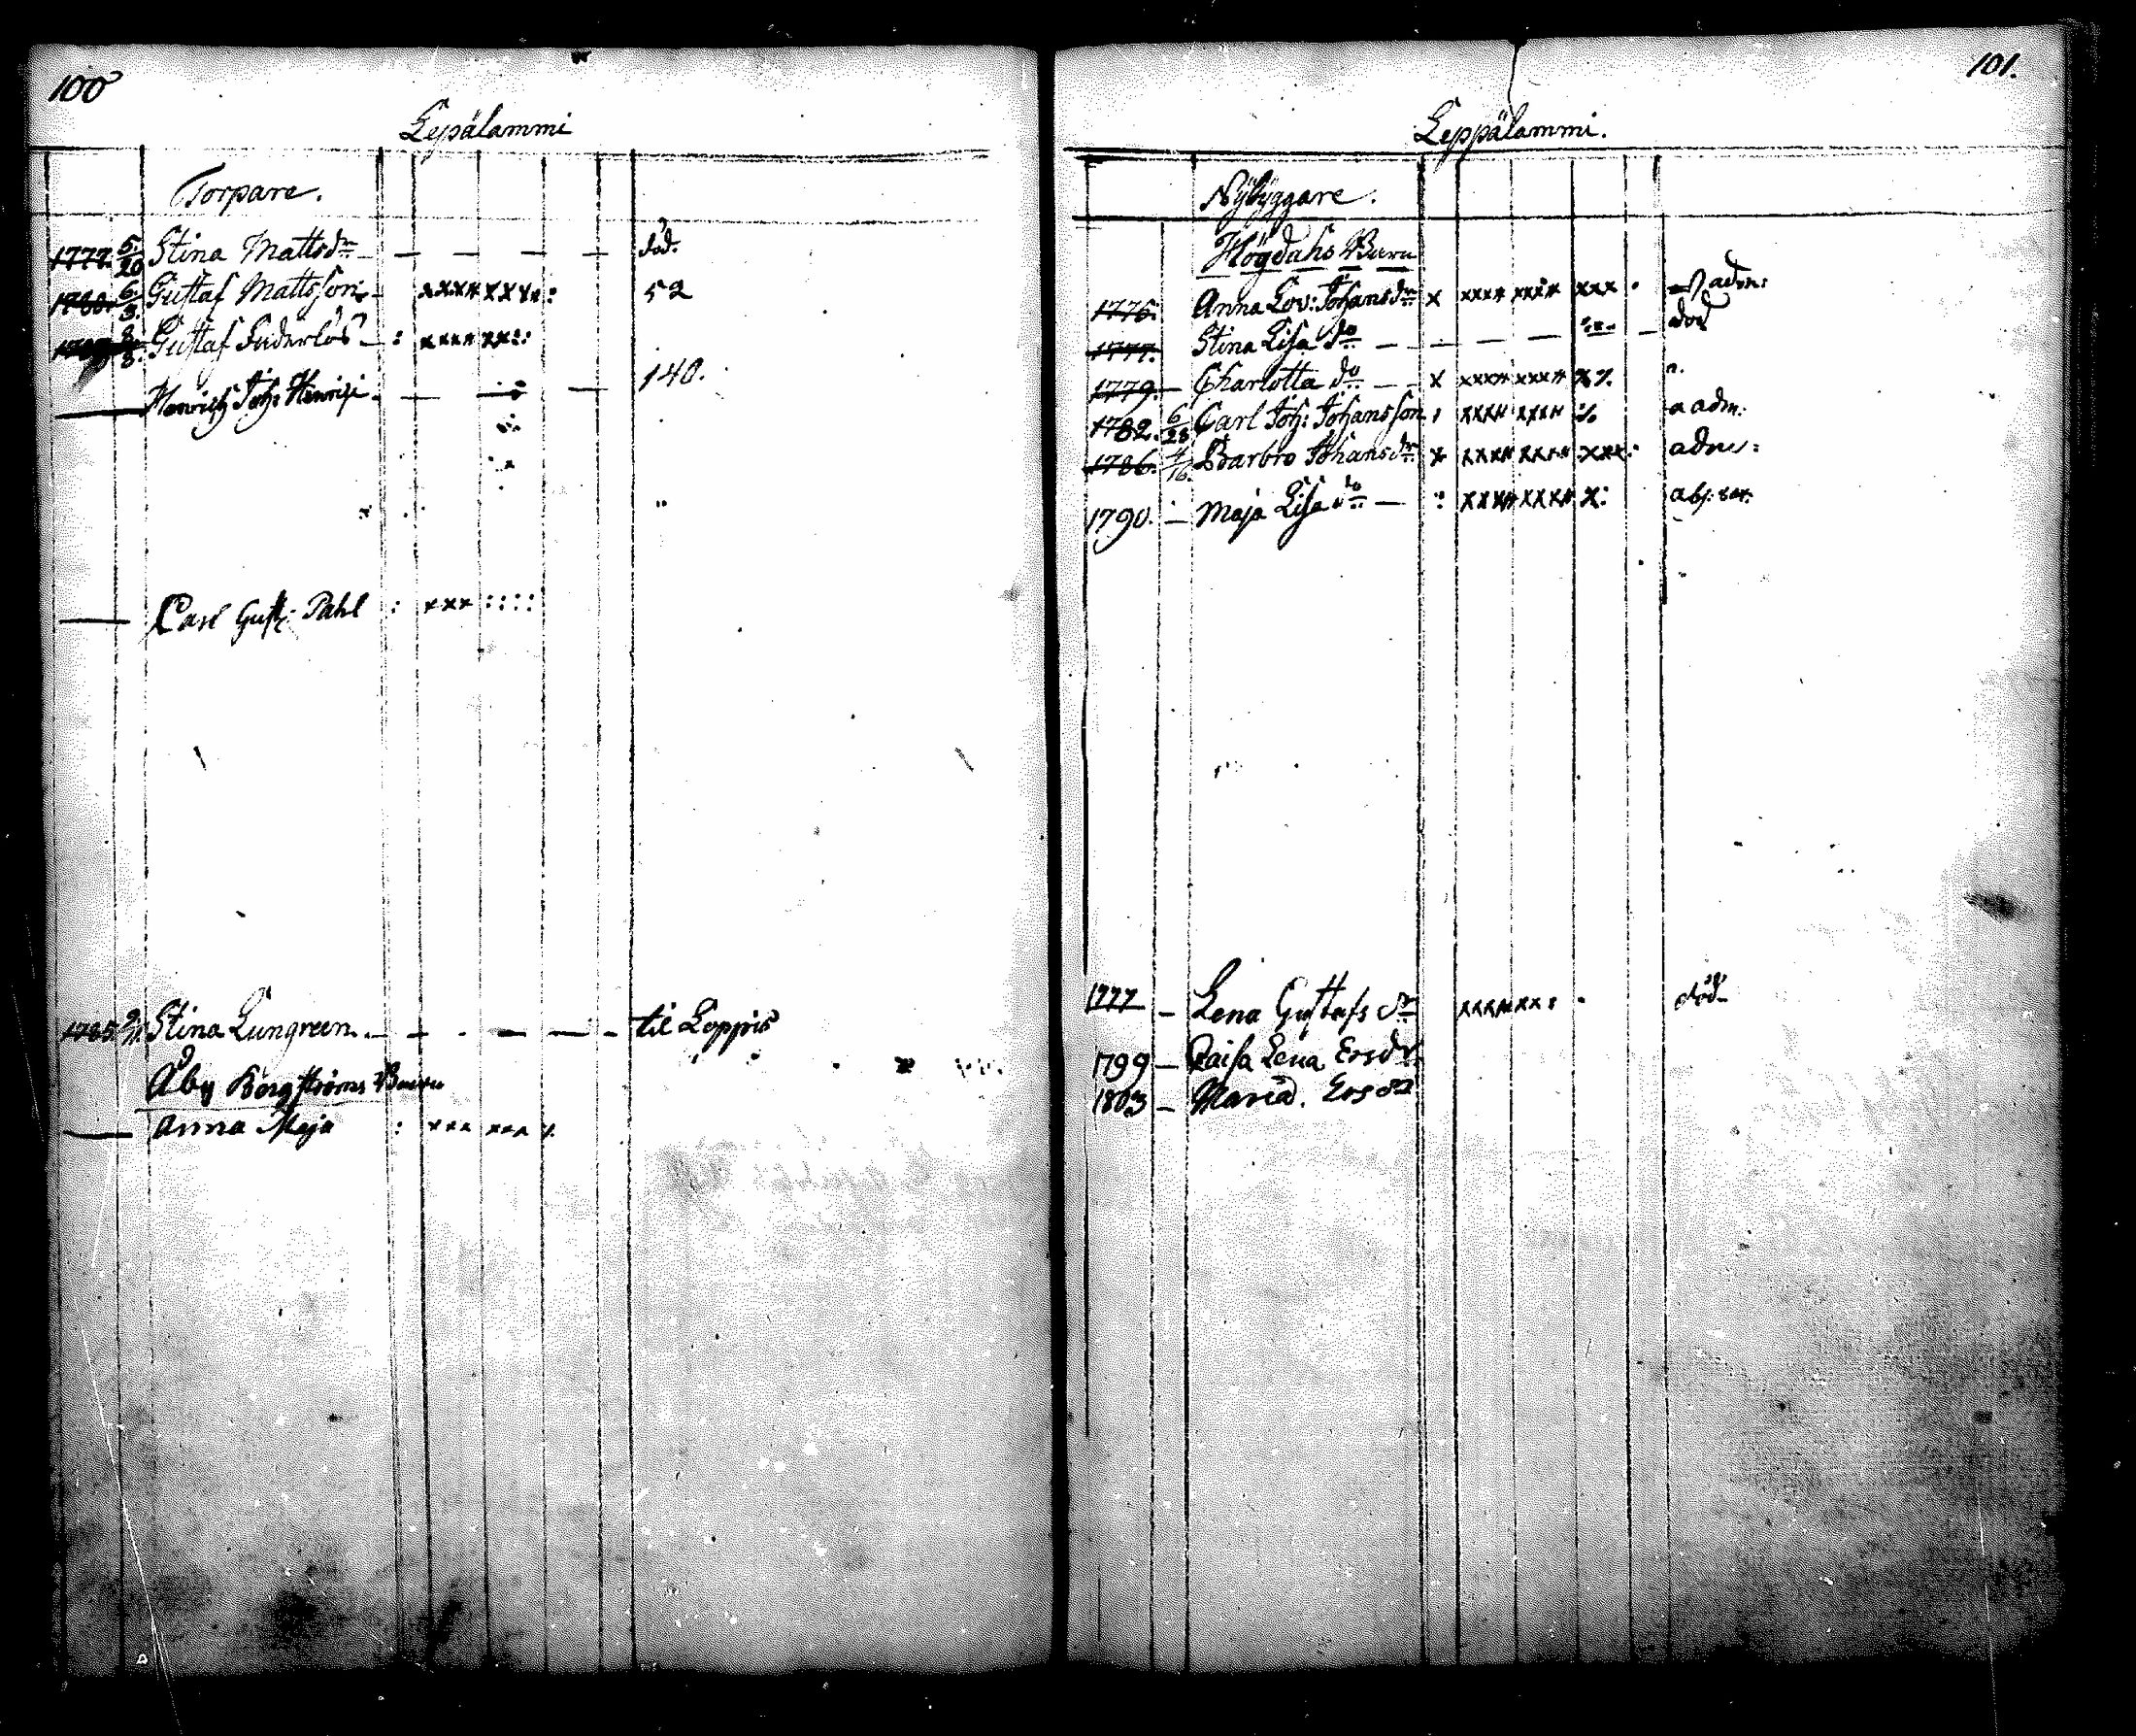 100
Lepälammi
Torpare.
1777. 5/20 Stina Mattsdr — — — — — död.
1780. 6/3. Gustaf Mattsson xxxx xxxx : 52
Gustaf : xxxx xx::
Henrich Joh: — — — 140.
— Carl Gust: Pahl : xxx ::::
1785. Stina Lungreen — — — — — til Loppis
Åby Bergströms Barn
— Anna Maja : xxx xxx
101.
Leppälammi.
Nybyggare.
Högdahs Barn
1776. Anna Lov: Johansdr x xxxx xxxx xxx adm:
1777. Stina Lisa do — — — — död
1779. — Charlotta do — — x xxxx xxxx
1782. 6/28 Carl Joh: Johansson xxxx xxxx adm:
1786. 4/16. Barbro Johansdr x xxxx xxxx xxx
1790. — Maja Lisa do — : xxxx xxxx x:
1777 — Lena Gustafs dr xxxx xx: död
1799 — Caisa Lena Ersdr
1803 — Maria. Ersdr